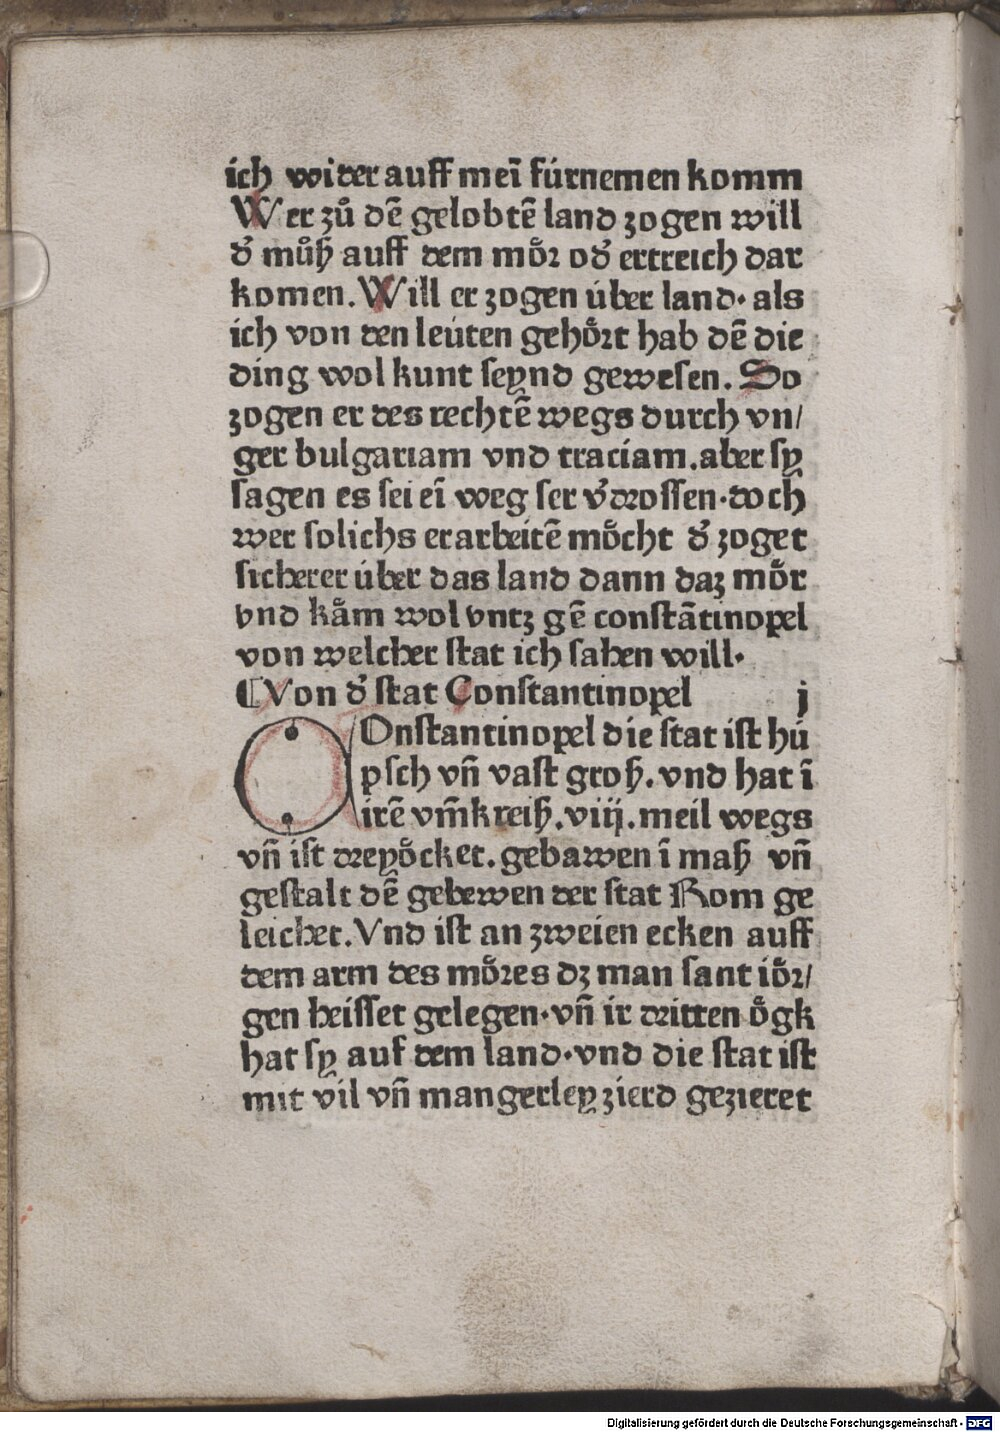 ich wider auff meī fúrnemen komm
Wer zů dē gelobtē land zogen will
d̕ můß auff dem moͤꝛ od̕ ertreich dar
komen. Will er zogen úber land· als
ich von den leúten gehoͤꝛt hab dē die
ding wol kunt seynd gewesen. So
zogen er des rechtē wegs durch vn/
ger bulgariam vnd traciam. aber sy
sagen es sei eī weg ser v̕drossen· doch
wer solichs erarbeitē moͤcht d̕ zoget
sicherer úber das land dann daz moͤr
vnd kaͤm wol vntz gē constātinopel
von welcher stat ich sahen will·
¶Von d̕ stat Constantinopel j
COnstantinopel die stat ist hú
psch vn̄ vast groß. vnd hat ī
irē vm̄kreiß. viij. meil wegs
vn̄ ist dreyoͤcket. gebawen ī maß vn̄
gestalt dē gebewen der stat Rom ge
leicher. Vnd ist an zweien ecken auff
dem arm des moͤres dz man sant ioͤꝛ/
gen heisset gelegen· vn̄ ir dritten oͤgk
hat sy auf dem land· vnd die stat ist
mit vil vn̄ mangerley zierd gezieret
Digitalisierung gefördert durch die Deutsche Forschungsgemeinschaft - DFG